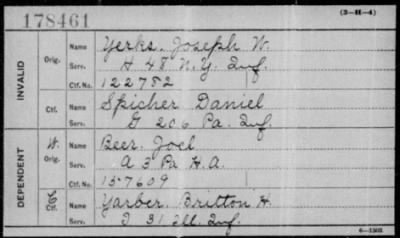 178461
(3-H-4)
INVALID
Orig. Name Yerks, Joseph W.
Serv. H 48 N.Y. Inf.
Ctf. No. 122782
Ctf. Name Spicher Daniel
Serv. G 206 Pa. Inf.
DEPENDENT
W. Orig. Name Beer, Joel
Serv. A 3 Pa H.A.
Ctf. No. 157609
C Ctf. Name Yarber, Britton H.
Serv. I 31 Ill. Inf.